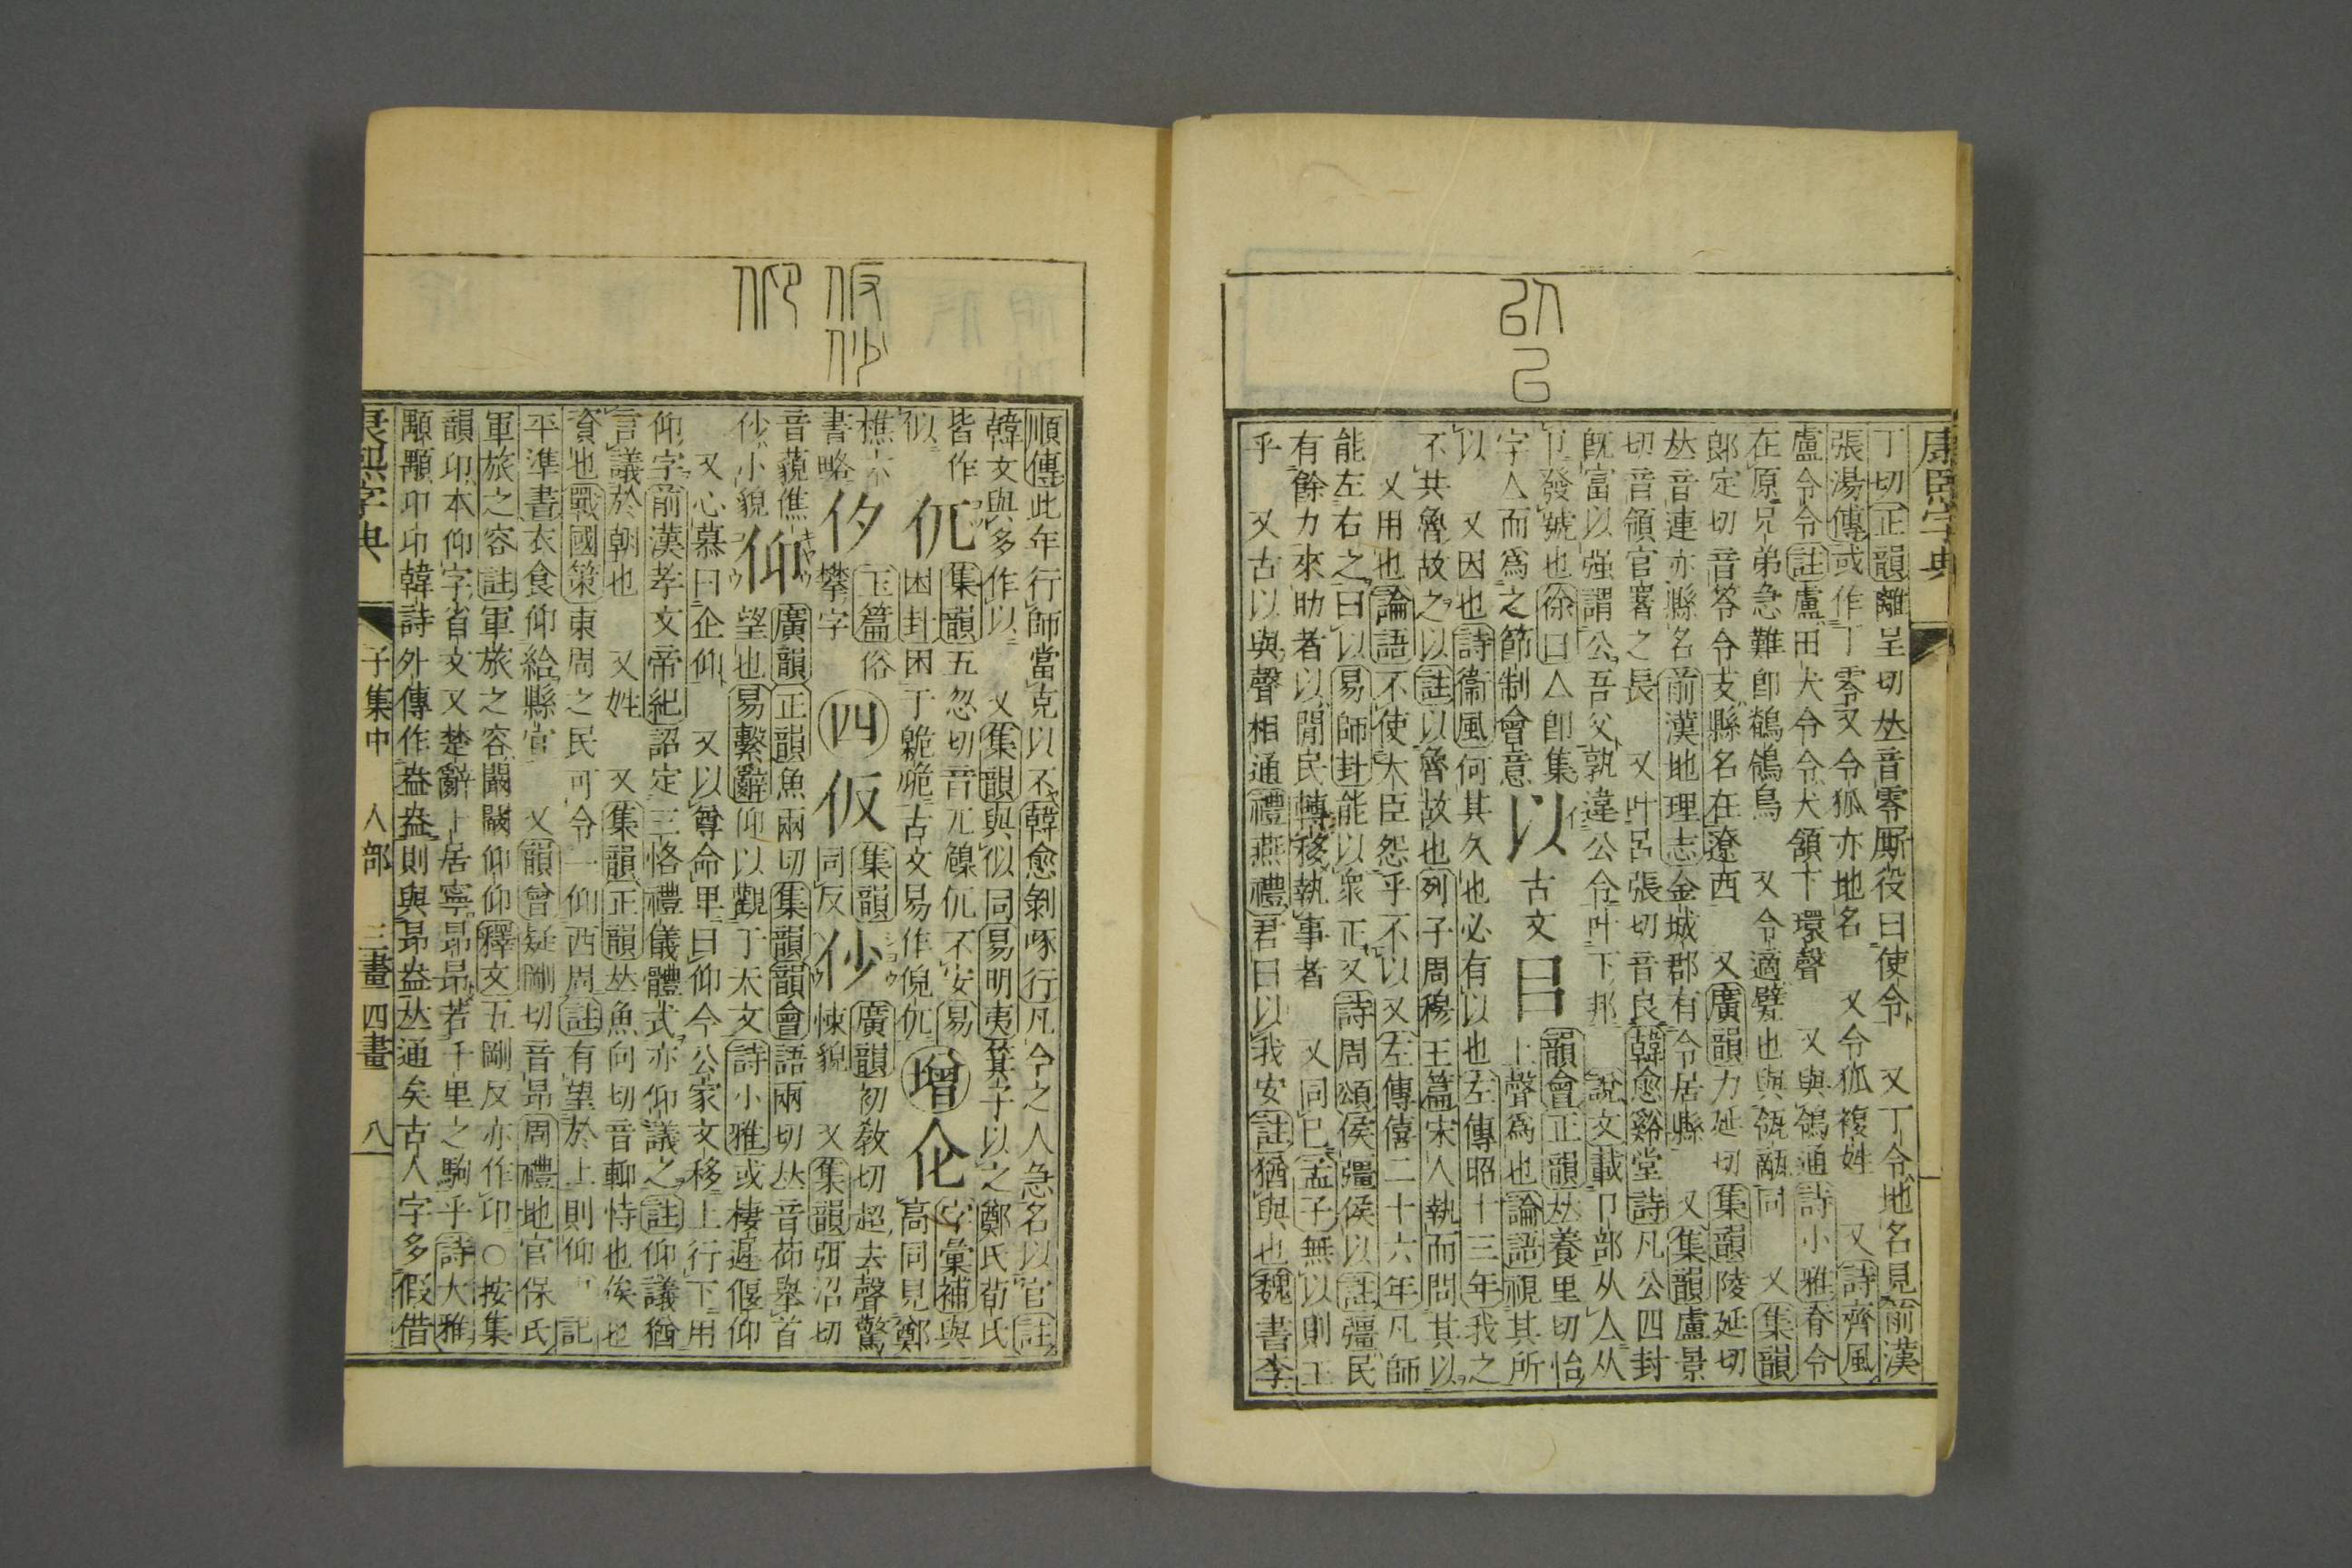 康熙字典
丁切正韻離呈切𠀤音零厮役曰使令　又丁令地名見前漢
張湯傳或作丁零又令狐亦地名　又令狐複姓　又詩齊風
盧令令註盧田犬令令犬頷下環聲　又與鴒通詩小雅脊令
在原兄弟急難卽鶺鴒鳥　又令適甓也與瓴甋同　又集韻
郎定切音笭令支縣名在遼西　又廣韻力延切集韻陵延切
𠀤音連亦縣名前漢地理志金城郡有令居縣　又集韻盧景
切音領官署之長　又叶呂張切音良韓愈谿堂詩凡公四封
旣富以强謂公吾父孰違公令叶下邦　說文載卩部从亼从
卩發號也徐曰亼卽集
字亼而爲之節制會意
以
古文㠯
韻會正韻𠀤養里切怡
上聲爲也論語視其所
以　又因也詩衞風何其久也必有以也左傳昭十三年我之
不共魯故之以註以魯故也列子周穆王篇宋人執而問其以
又用也論語不使大臣怨乎不以又左傳僖二十六年凡師
能左右之曰以易師卦能以衆正又詩周頌侯彊侯以註彊民
有餘力來助者以閒民轉移執事者　又同已孟子無以則王
乎　又古以與聲相通禮燕禮君曰以我安註猶與也魏書李
順傳此年行師當克以不韓愈剝啄行凡今之人急名以官註
韓文與多作以　又集韻與似同易明夷箕子以之鄭氏荀氏
皆作
似
㐳
集韻五忽切音兀㒖㐳不安易
困卦困于臲卼古文易作倪㐳
增
字彙補與
高同見鄭
樵六
書略
㐴
玉篇俗
攀字
四
仮
集韻
同反
仯
廣韻初敎切超去聲驚
悚貌　又集韻弭沼切
音藐僬
仯小貌
仰
廣韻正韻魚兩切集韻韻會語兩切𠀤音茆舉首
望也易繫辭仰以觀于天文詩小雅或棲遲偃仰
又心慕曰企仰　又以尊命卑曰仰今公家文移上行下用
仰字前漢孝文帝紀詔定三恪禮儀體式亦仰議之註仰議猶
言議於朝也　又姓　又集韻正韻𠀤魚向切音軜恃也俟也
資也戰國策東周之民可令一仰西周註有望於上則仰　記
平準書衣食仰給縣官　又韻會疑剛切音昂周禮地官保氏
軍旅之容註軍旅之容闞闞仰仰釋文五剛反亦作卬○按集
韻卬本仰字省文又楚辭卜居寧昂昂若千里之駒乎詩大雅
顒顒卬卬韓詩外傳作盎盎則與昂盎𠀤通矣古人字多假借
康熙字典
子集中　人部　三畫四畫　八